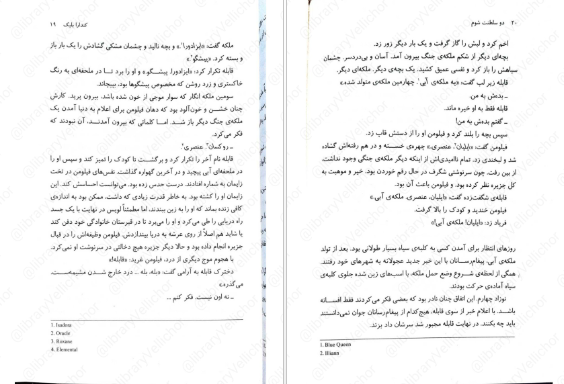 کندارا بلیک ۱۹
ملکه گفت: «ایزادورا¹.» و بچه نالید و چشمان مشکی گشادش را یک بار باز
و بسته کرد. «پیشگو².»
قابله تکرار کرد: «ایزادورا. پیشگو.» و او را برد تا در ملحفه‌ای به رنگ
خاکستری و زرد روشن که مخصوص پیشگوها بود، بپیچاند
سومین ملکه انگار که سوار موجی از خون شده باشد، بیرون پرید. کارش
چنان خشن و خون‌آلود بود که دهان فیلومن برای اعلام به دنیا آمدن یک
ملکه‌ی جنگ دیگر باز شد. اما کلماتی که بیرون آمدند، آن نبودند که
فکر می‌کرد.
ـ روکسان³. عنصری⁴
قابله نام آخر را تکرار کرد و برگشت تا کودک را تمیز کند و سپس او را
در ملحفه‌ای آبی پیچید و در آخرین گهواره گذاشت. نفس‌های فیلومن در تخت
زایمان به شماره افتادند. درست حدس زده بود. می‌توانست احساسش کند. این
زایمان او را کشته بود. به خاطر قدرت زیادی که داشت، ممکن بود به اندازه‌ی
کافی زنده بماند که او را به زین ببندند، اما مطمئناً لویس در نهایت با یک جسد
راه دریایی را طی می‌کرد و او را می‌برد تا در قبرستان خانوادگی خود دفن کند
یا شاید هم اصلاً از روی عرشه به دریا بیندازدش. فیلومن وظیفه‌اش را در قبال
جزیره انجام داده بود و حالا دیگر جزیره هیچ دخالتی در سرنوشت او نمی‌کرد.
با هجوم موج دیگری از درد، فیلومن غرید: «قابله!»
دخترک قابله به آرامی گفت: «بله، بله ـ درد خارج شدن مشیمه‌ست.
می‌گذره.»
ـ نه اون نیست. فکر کنم ...
1. Isadora
2. Oracle
3. Roxane
4. Elemental
۲۰ دو سلطنت شوم
اخم کرد و لبش را گاز گرفت و یک بار دیگر زور زد.
بچه‌ای دیگر از شکم ملکه‌ی جنگ بیرون آمد. آسان و بی‌دردسر. چشمان
سیاهش را باز کرد و نفسی عمیق کشید. یک بچه‌ی دیگر. ملکه‌ای دیگر.
قابله زیر لب گفت: «یه ملکه‌ی آبی¹. چهارمین ملکه‌ی متولد شده.»
ـ بدش به من.
قابله فقط به او خیره ماند.
ـ گفتم بدش به من!
سپس بچه را بلند کرد و فیلومن او را از دستش قاپ زد.
فیلومن گفت: «ایلیان². عنصری.» چهره‌ی خسته و در هم رفته‌اش گشاده
شد و لبخندی زد. تمام ناامیدی‌اش از اینکه دیگر ملکه‌ی جنگی وجود نداشت،
از بین رفت، چون سرنوشتی شگرف در حال رقم خوردن بود. خیر و موهبت به
کل جزیره نظر کرده بود. و فیلومن باعث آن بود.
قابله‌ی شگفت‌زده گفت: «ایلیان، عنصری. ملکه‌ی آبی.»
فیلومن خندید و کودک را بالا گرفت.
فریاد زد: «ایلیان! ملکه‌ی آبی!»
روزهای انتظار برای آمدن کسی به کلبه‌ی سیاه بسیار طولانی بود. بعد از تولد
ملکه‌ی آبی، پیغام‌رسانان با این خبر جدید عجولانه به شهرهای خود رفتند.
همگی از لحظه‌ی شروع وضع حمل ملکه، با اسب‌های زین شده جلوی کلبه‌ی
سیاه آماده‌ی حرکت بودند.
نوزاد چهارم. این اتفاق چنان نادر بود که بعضی فکر می‌کردند فقط افسانه
باشد. با اعلام خبر از سوی قابله، هیچ‌کدام از پیغام‌رسانان جوان نمی‌دانستند
باید چه بکنند. در نهایت قابله مجبور شد سرشان داد بزند.
1. Blue Queen
2. Iliann